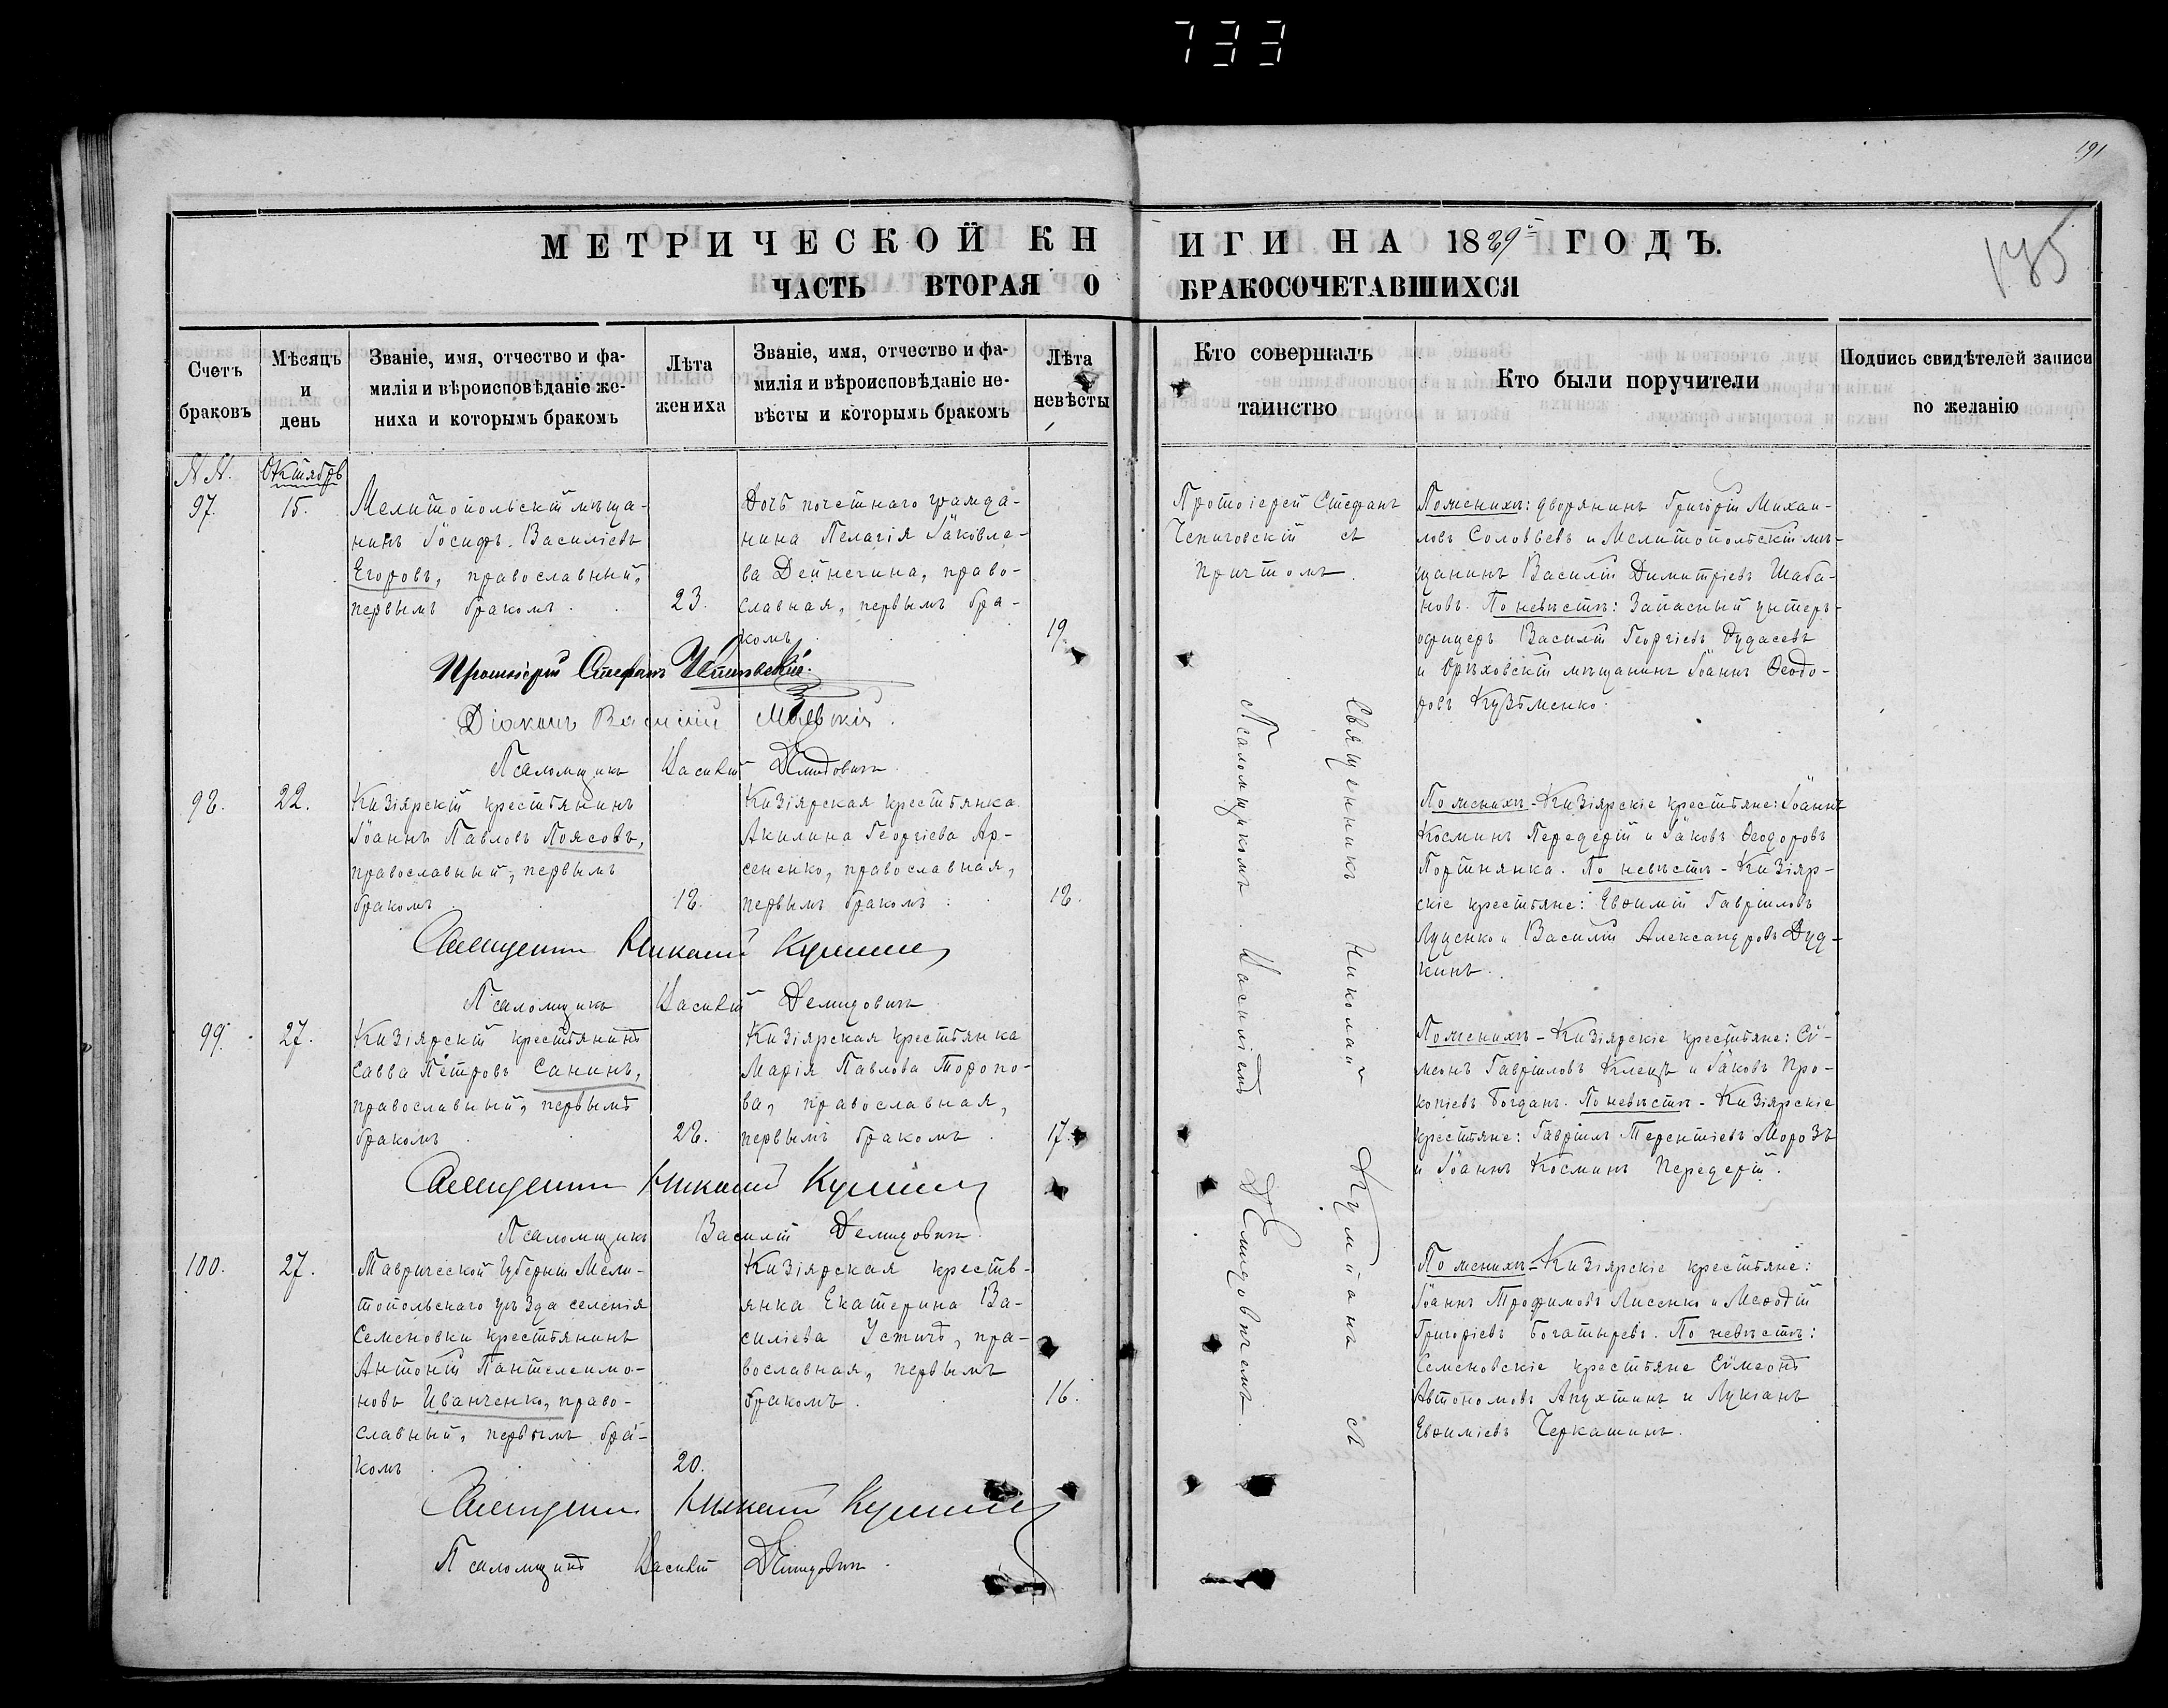 733
191
135
МЕТРИЧЕСКОЙ КНИГИ НА 1889й ГОДЪ.
ЧАСТЬ ВТОРАЯ О БРАКОСОЧЕТАВШИХСЯ
Счетъ браковъ
Мѣсяцъ и день
Званіе, имя, отчество и фа-
милія и вѣроисповѣданіе же-
ниха и которымъ бракомъ
Лѣта жениха
Званіе, имя, отчество и фа-
милія и вѣроисповѣданіе не-
вѣсты и которымъ бракомъ
Лѣта невѣсты
Кто совершалъ таинство
Кто были поручители
Подпись свидѣтелей записи
по желанію
N.N.
Октябрь
97.
15.
Мелитопольскій мѣща-
нинъ Іосифъ Василіевъ
Егоровъ, православный,
первымъ бракомъ.
23.
Дочь почетнаго гражда-
нина Пелагія Іаковле-
ва Дейнегина, право-
славная, первымъ бра-
комъ
19.
Протоіерей Стефанъ
съ
причтомъ.
По женихѣ: дворянинъ Григорій Михаи-
ловъ Соловьевъ и Мелитопольскій мѣ-
щанинъ Василій Димитріевъ Шаба-
новъ. По невѣстѣ: Запасный унтеръ-
офицеръ Василій Георгіевъ Дудасевъ
и Орѣховскій мѣщанинъ Іоаннъ Ѳеодо-
ровъ Кузьменко.
Протоіерей Стефанъ
Діаконъ Василій
Псаломщикъ Василій Демидовичъ
98.
22.
Кизіярскій крестьянинъ
Іоаннъ Павловъ Поясовъ,
православный, первымъ
бракомъ.
18.
Кизіярская крестьянка
Акилина Георгіева Ар-
сененко, православная,
первымъ бракомъ.
18.
По женихѣ - Кизіярскіе крестьяне: Іоаннъ
Косминъ Передерій и Іаковъ Ѳеодоровъ
Портнянка. По невѣстѣ - Кизіяр-
скіе крестьяне: Евѳимій Гавріиловъ
Луценко и Василій Александровъ Дуд-
кинъ.
Священникъ Николай
Псаломщикъ Василій Демидовичъ
99.
27.
Кизіярскій крестьянинъ
Савва Петровъ Санинъ,
православный, первымъ
бракомъ
28.
Кизіярская крестьянка
Марія Павлова Торопо-
ва, православная,
первымъ бракомъ.
17.
По женихѣ - Кизіярскіе крестьяне: Сѵ-
меонъ Гавріиловъ Клецъ и Іаковъ Про-
копіевъ Богданъ. По невѣстѣ - Кизіярскіе
крестьяне: Гавріилъ Терентіевъ Морозъ
и Іоаннъ Косминъ Передерій.
Священникъ Николай
Псаломщикъ Василій Демидовичъ
100.
27.
Таврической губерніи Мели-
топольскаго уѣзда селенія
Семеновки крестьянинъ
Антоній Пантелеимо-
новъ Иванченко, право-
славный, первымъ бра-
комъ
20.
Кизіярская крестья-
янка Екатерина Ва-
силіева Устичъ, пра-
вославная, первымъ
бракомъ.
16.
По женихѣ - Кизіярскіе крестьяне:
Іоаннъ Трофимовъ Лисенко и Меѳодій
Григоріевъ Богатыревъ. По невѣстѣ:
Семеновскіе крестьяне Сѵмеонъ
Автономовъ Апухтинъ и Лукіанъ
Евѳиміевъ Черкашинъ.
Священникъ Николай
Псаломщикъ Василій Демидовичъ
Священникъ Николай съ
Псаломщикомъ Василіемъ Демидовичемъ.